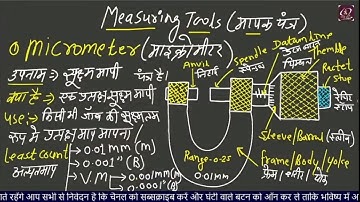 Measuring Tools (मापक यंत्र)
० micrometer (माइक्रोमीटर)
उपनाम → सूक्ष्म मापी
क्या है → एक प्रत्यक्ष सूक्ष्म मापी यंत्र है।
use: → किसी भी जॉब की सूक्ष्मतम
रूप में प्रत्यक्ष माप मापना
Least count
अल्पतमाप
→ 0.01 mm (M)
→ 0.001" (B)
→ V.M
0.001mm (M)
0.0001" (B)
Anvil
निहाई
Spendle
स्पिंडल
Datum line
Themble
थिम्बल
Ractet stop
रैचेट स्टॉप
Sleeve/Barrel (स्लीव)
Frame/Body/yoke
फ्रेम / बॉडी / योक
Range-0-25
0.01mm
ाते रहेंगे आप सभी से निवेदन है कि चैनल को सब्सक्राइब करें और घंटी वाले बटन को ऑन कर ले ताकि भविष्य में अ